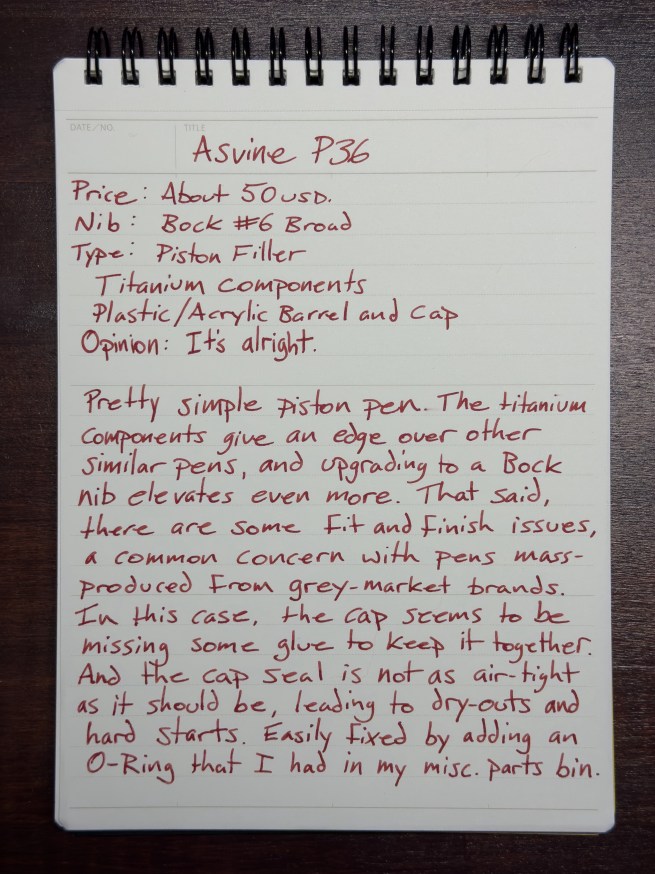 DATE/NO.
TITLE
Asvine P36
Price: About 50 USD.
Nib: Bock #6 Broad
Type: Piston Filler
Titanium Components
Plastic/Acrylic Barrel and Cap
Opinion: It's alright.
Pretty simple piston pen. The titanium
components give an edge over other
similar pens, and upgrading to a Bock
nib elevates even more. That said,
there are some fit and finish issues,
a common concern with pens mass-
produced from grey-market brands.
In this case, the cap seems to be
missing some glue to keep it together.
And the cap seal is not as air-tight
as it should be, leading to dry-outs and
hard starts. Easily fixed by adding an
O-Ring that I had in my misc. parts bin.